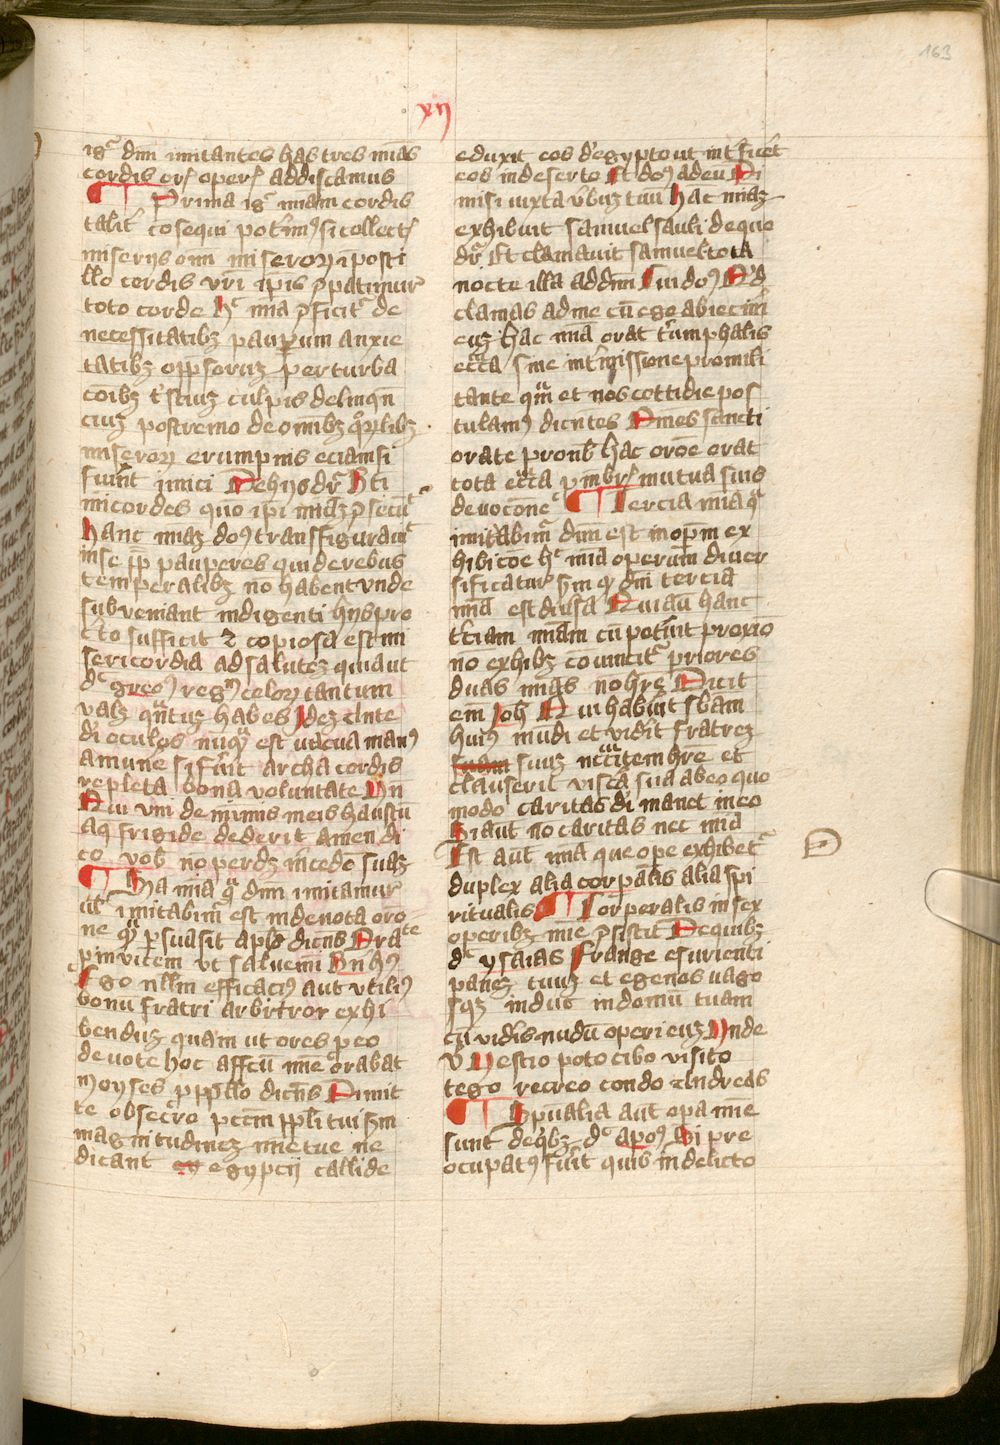 163
xij
igr dnm imitantes has tres mias
cordis oris operis addiscamus
Prima igr miam cordis
talit cosequi poterimus si collectis
miserijs oim miserorum in posti
llo cordis uri ipis compatimur
toto corde Hec mia perficitur de
necessitatibz pauperum anxie
tatibz oppsorum perturba
coibz tristium culpis delinqn
cium postremo de omnibz quorumlibz
miserorum erumpnis eciamsi
fuerint inimici De hijs dr Bti
micordes quo ipi miam psecutr
Hanc miam dos transfiguravit
in se pp pauperes qui de rebus
temperalibz no habent unde
subveniant indigenti hijs pro
certo sufficit et copiosa est mi
sericordia ad salutem quia ut
dt greos regnum celorum tantum
valz quntum habes Idem Ante
di oculos nunqum est vacua manus
a mune si fuerit archa cordis
repleta bona voluntate Un
Qui uni de minimis meis haustum
aque frigide dederit amen di
co vob no perdet mcedem suam
Ba mia qua dnm imitamur
ul imitabimur est in devota oro
ne quam psuasit apls dicens Orate
pro invicem ut salvemi Bnhus
Ego nllm efficacius aut utilius
bonum fratri arbitror exhi
bendum quam ut ores pro eo
devote hoc affectu mie orabat
Moyses pro pplo dicens Dimit
te obsecro pctm ppli tui scdm
magnitudinem mie tue ne
dicant eg egypcij callide
eduxit eos de egypto ut intficet
eos in deserto Et dos ad eum Di
misi iuxta verbum tuum Hac miam
exhibuit samuel sauli de quo
dr Et clamavit samuel tota
nocte illa ad dnm Cui dos Quid
clamas ad me cum ego abiecim
eum hac mia orat triumphalis
eccia sine intmissione pro mili
tante quam et nos cottidie pos
tulamus dicentes Omnes sancti
orate pro nob hac oroe orat
tota eccia pro membris mutua suis
devocone Tercia mia qua
imitabimur dnm est inopum ex
hibicoe hec mia operum diver
sificatur scdm quod dni tercia
mia est divisa Qui aut hanc
tciam miam cum poterit proximo
no exhibz convincitur priores
duas mias no hre Dicit
em Joh Qui habuerit sbam
huius mundi et viderit fratrem
suam suum necessitatem hre et
clauserit viscera sua ab eo quo
modo caritas di manet in eo
Si aut no caritas nec mia
Est aut mia que ope exhibetur
duplex alia corpalis alia spi
ritualis Corperalis in sex
operibz mie consistit De quibz
dt ysaias Frange esurienti
panem tuum et egenos vago
sqz induc in domum tuam
cum videris nudum operi eum Unde
v Vestio poto cibo visito
tego recreo condo Andreas
Spualia aut opa mie
sunt de qbz dt apos Si pre
ocupatus fuerit quis in delicto
D